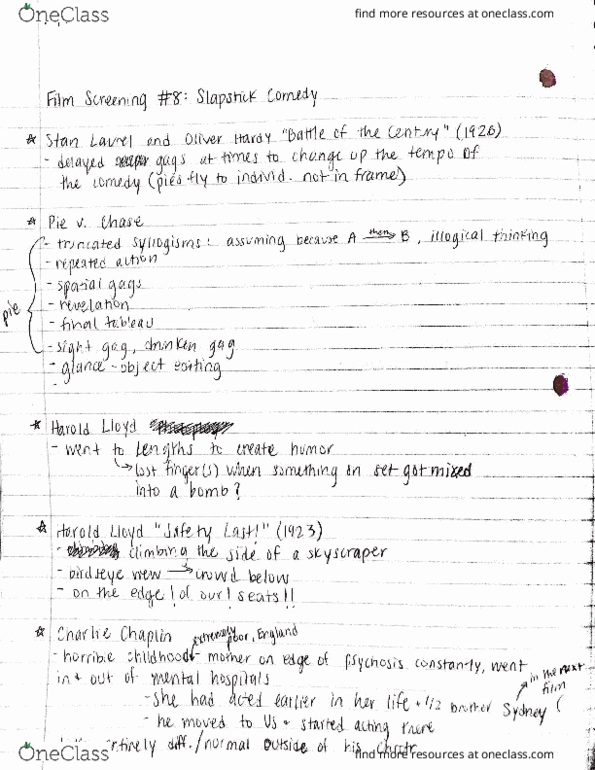 OneClass find more resources at oneclass.com
Film Screening #8: Slapstick Comedy
☆ Stan Laurel and Oliver Hardy "Battle of the Century" (1926)
- delayed gags at times to change up the tempo of
the comedy (pies fly to individ. not in frame)
☆ Pie v. Chase
- truncated syllogisms: assuming because A then→ B, illogical thinking
- repeated action
- spatial gags
- revelation
pie
- final tableau
- sight gag, drunken gag
- glance-object editing
-
☆ Harold Lloyd
- went to lengths to create humor
↳ lost finger(s) when something on set got mixed
into a bomb?
☆ Harold Lloyd "Safety Last!" (1923)
- climbing the side of a skyscraper
- birdseye view → crowd below
- on the edge! of our! seats!!
☆ Charlie Chaplin extremely poor, England
- horrible childhood - mother on edge of psychosis constantly, went
in + out of mental hospitals
in the next film
- She had acted earlier in her life + 1/2 brother Sydney (
- he moved to US + started acting there
diff./normal outside of his
OneClass find more resources at oneclass.com